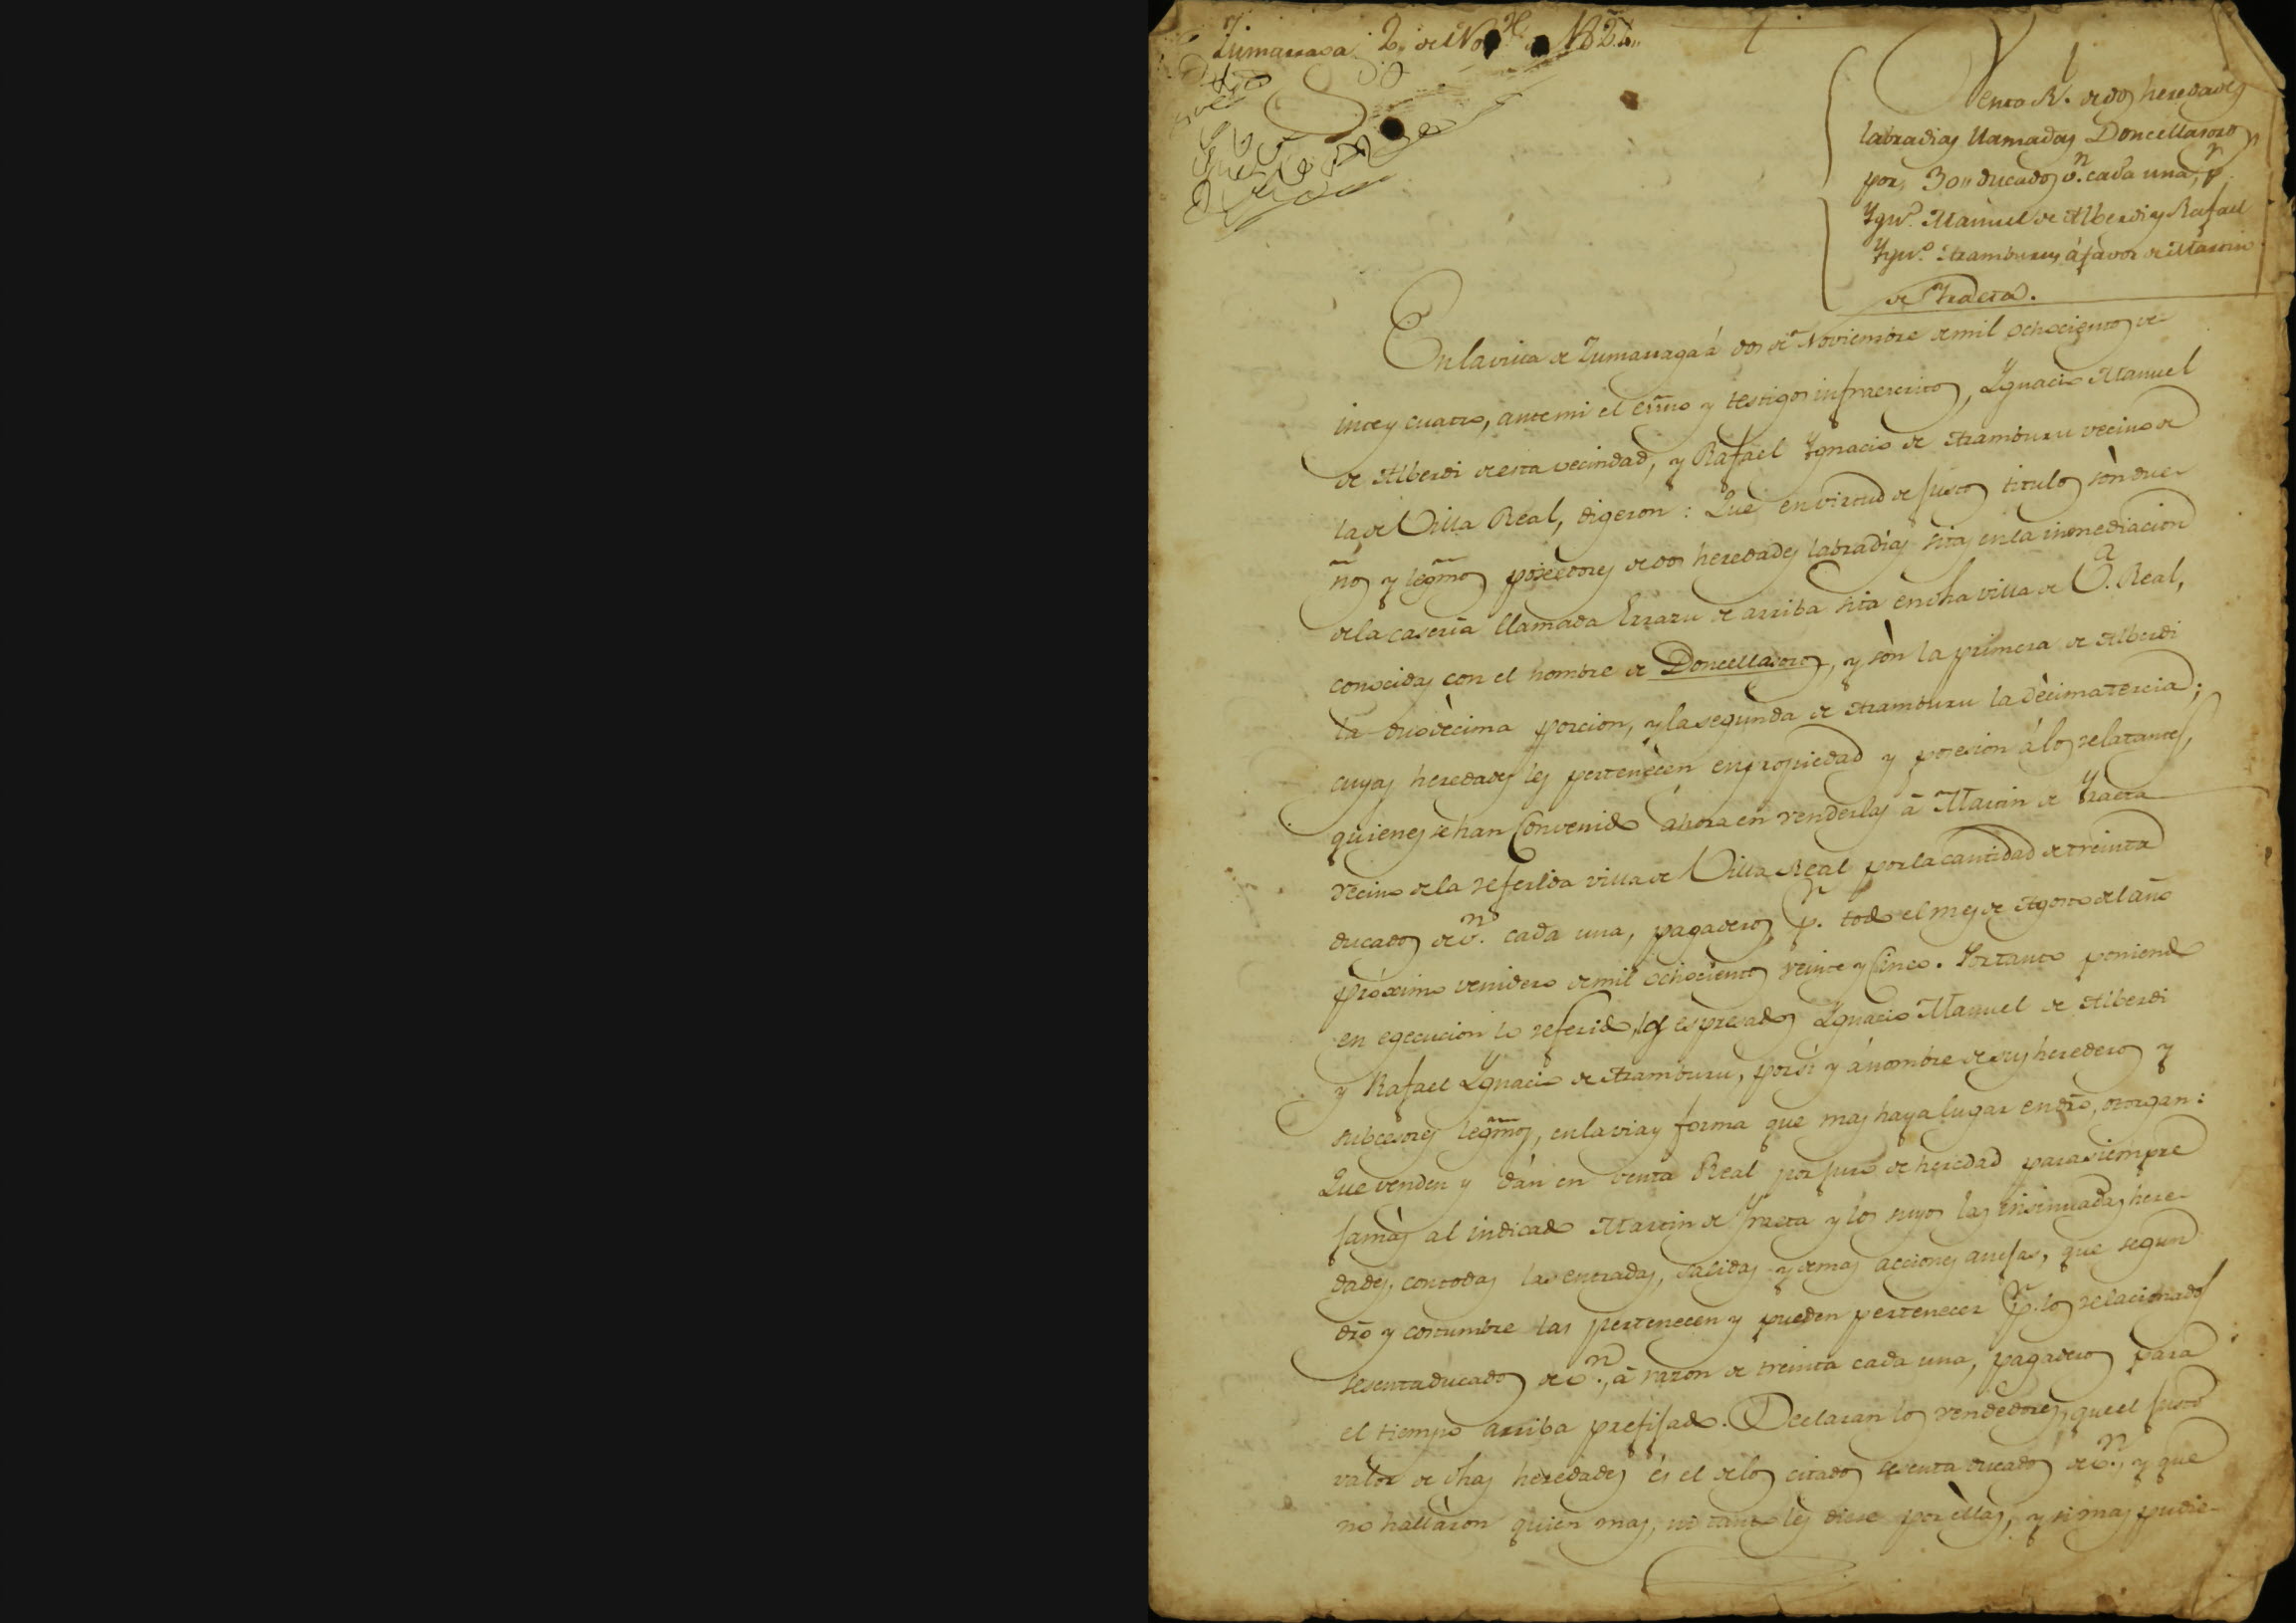 Zumarraga 2,, de Nov.e de 1824,,
Venta Rl. de dos heredades
labradias llamadas Doncellasoro
por 30,, ducados v.n cada una, p.r
Ygn.o Manuel de Alberdi y Rafael
Ygn.o Aramburu, á favor de Martin
de Yraeta.
En la villa de Zumarraga á dos de Noviembre de mil ochocientos ve
inte y cuatro, ante mi el esno y testigos infraescritos, Ygnacio Manuel
de Alberdi de esta vecindad, y Rafael Ygnacio de Aramburu vecino de
la de Villa Real, digeron: Que en virtud de justos titulos sòn due
ños y legmos poseedores de dos heredades labradías sitas en la inmediacion
de la caseria llamada Errazu de arriba sita en dha villa de V.a Real,
conocidas con el nombre de Doncellasoro, y sòn la primera de Alberdi
la duodècima porcion, y la segunda de Aramburu la dècimatercia;
cuyas heredades les pertenècen en propiedad y posesion á los relatantes,
quienes se han convenido ahora en venderlas á Martin de Yraeta
vecino de la referida villa de Villa Real por la cantidad de treinta
ducados de v.n cada una, pagaderos p.r todo el mes de Agosto del año
próximo venidero de mil ochocientos veinte y cinco. Por tanto poniendo
en egecucion lo referido, los espresados Ygnacio Manuel de Alberdi
y Rafael Ygnacio de Aramburu, por sì y á nombre de sus herederos y
subcesores legmos, en la via y forma que mas haya lugar en dro, otorgan:
Que venden y dán en venta Real por juro de heredad para siempre
jamàs al indicado Martin de Yraeta y los suyos las insinuadas here-
dades, con todas las entradas, salidas y demas acciones anejas, que segun
dro y costumbre las pertenecen y pueden pertenecer p.r los relacionados
sesenta ducados de v.n, á razon de treinta cada una, pagaderos para
el tiempo arriba prefijado. Declaran los vendedores, que el justo
valor de dhas heredades és el de los citados sesenta ducados de v.n, y que
no hallàron quien mas, ni tanto les diese por èllas, y si mas pudie-